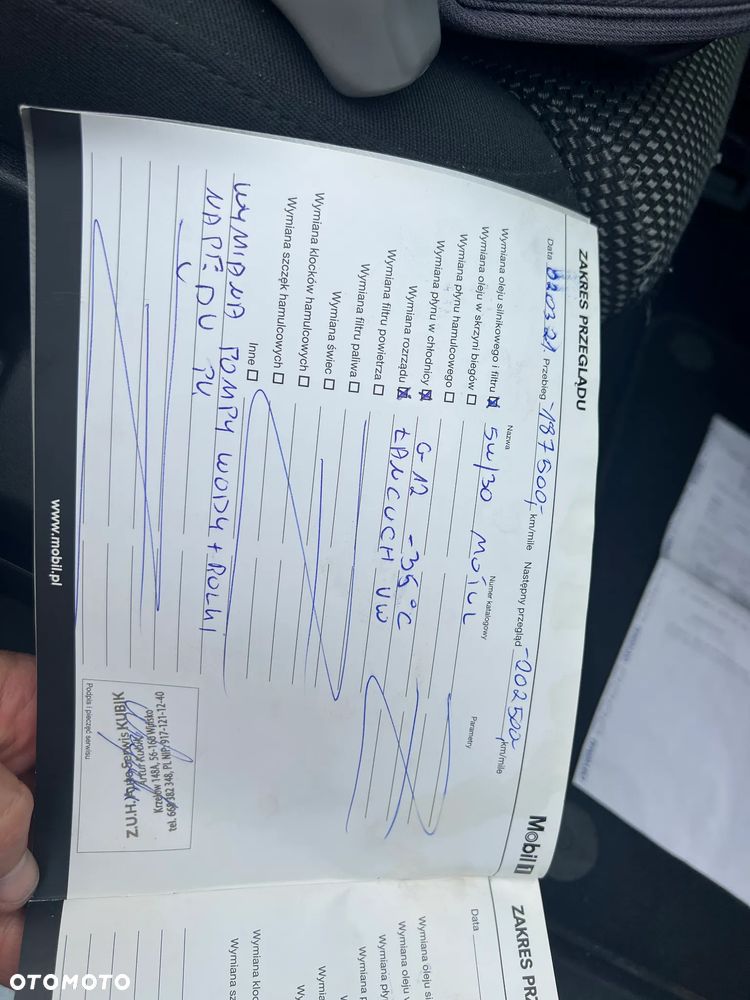 ZAKRES PRZEGLĄDU
Data 020321. Przebieg -187500,- km/mile Następny przegląd -202500 km/mile
Mobil 1
Nazwa Numer katalogowy Parametry
Wymiana oleju silnikowego i filtru 5W/30 MOTUL
Wymiana oleju w skrzyni biegów
Wymiana płynu hamulcowego
Wymiana płynu w chłodnicy G 12 -35°C
Wymiana rozrządu ŁAŃCUCH VW
Wymiana filtru powietrza
Wymiana filtru paliwa
Wymiana świec
Wymiana klocków hamulcowych
Wymiana szczęk hamulcowych
Inne
WYMIANA POMPY WODY + ROLKI
NAPĘDU PK
Podpis i pieczęć serwisu
www.mobil.pl
ZAKRES PRZ
Data
Wymiana oleju si
Wymiana oleju
Wymiana pły
Wymiana
Wymiana kloc
Wymiana sz
OTOMOTO